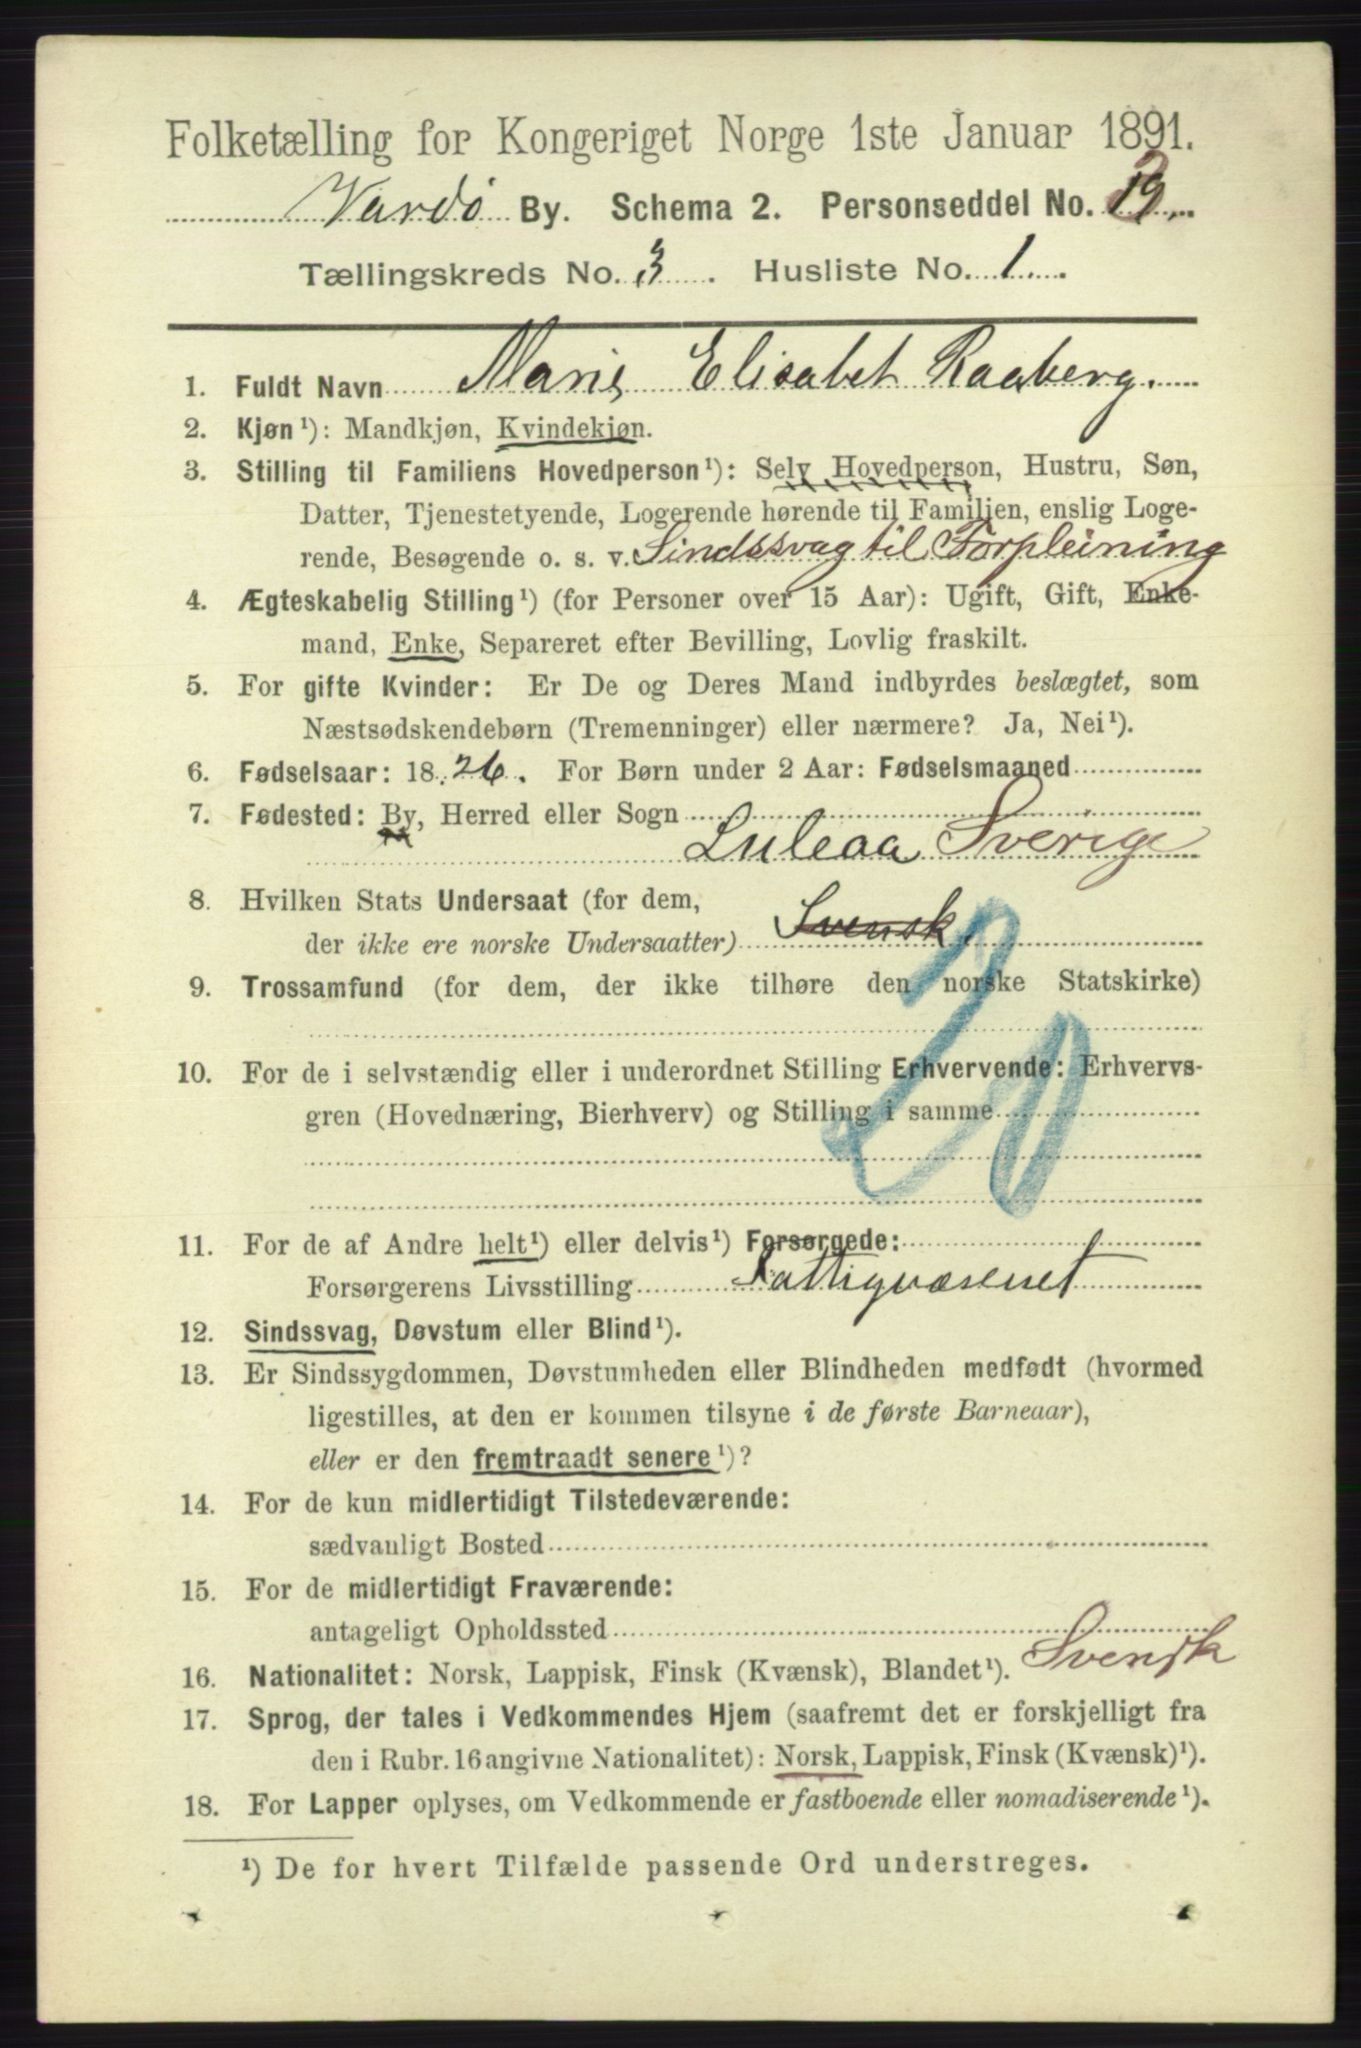 Folketælling for Kongeriget Norge 1ste Januar 1891.
Vardö By. Schema 2. Personseddel No. 19.
Tællingskreds No. 3. Husliste No. 1.
1. Fuldt Navn Marie Elisabet Raaberg.
2. Kjøn ¹): Mandkjøn, Kvindekjøn.
3. Stilling til Familiens Hovedperson ¹): Selv Hovedperson, Hustru, Søn,
Datter, Tjenestetyende, Logerende hørende til Familien, enslig Loge-
rende, Besøgende o. s. v. Sindssvag til Forpleining
4. Ægteskabelig Stilling ¹) (for Personer over 15 Aar): Ugift, Gift, Enke-
mand, Enke, Separeret efter Bevilling, Lovlig fraskilt.
5. For gifte Kvinder: Er De og Deres Mand indbyrdes beslægtet, som
Næstsødskendebørn (Tremenninger) eller nærmere? Ja, Nei ¹).
6. Fødselsaar: 1826. For Børn under 2 Aar: Fødselsmaaned
7. Fødested: By, Herred eller Sogn
Luleaa Sverige
8. Hvilken Stats Undersaat (for dem,
der ikke ere norske Undersaatter) Svensk.
20
9. Trossamfund (for dem, der ikke tilhøre den norske Statskirke)
10. For de i selvstændig eller i underordnet Stilling Erhvervende: Erhvervs-
gren (Hovednæring, Bierhverv) og Stilling i samme
11. For de af Andre helt ¹) eller delvis ¹) Forsørgede:
Forsørgerens Livsstilling Fattigvæsenet
12. Sindssvag, Døvstum eller Blind ¹).
13. Er Sindssygdommen, Døvstumheden eller Blindheden medfødt (hvormed
ligestilles, at den er kommen tilsyne i de første Barneaar),
eller er den fremtraadt senere ¹)?
14. For de kun midlertidigt Tilstedeværende:
sædvanligt Bosted
15. For de midlertidigt Fraværende:
antageligt Opholdssted
16. Nationalitet: Norsk, Lappisk, Finsk (Kvænsk), Blandet ¹). Svensk
17. Sprog, der tales i Vedkommendes Hjem (saafremt det er forskjelligt fra
den i Rubr. 16 angivne Nationalitet): Norsk, Lappisk, Finsk (Kvænsk) ¹).
18. For Lapper oplyses, om Vedkommende er fastboende eller nomadiserende ¹).
¹) De for hvert Tilfælde passende Ord understreges.